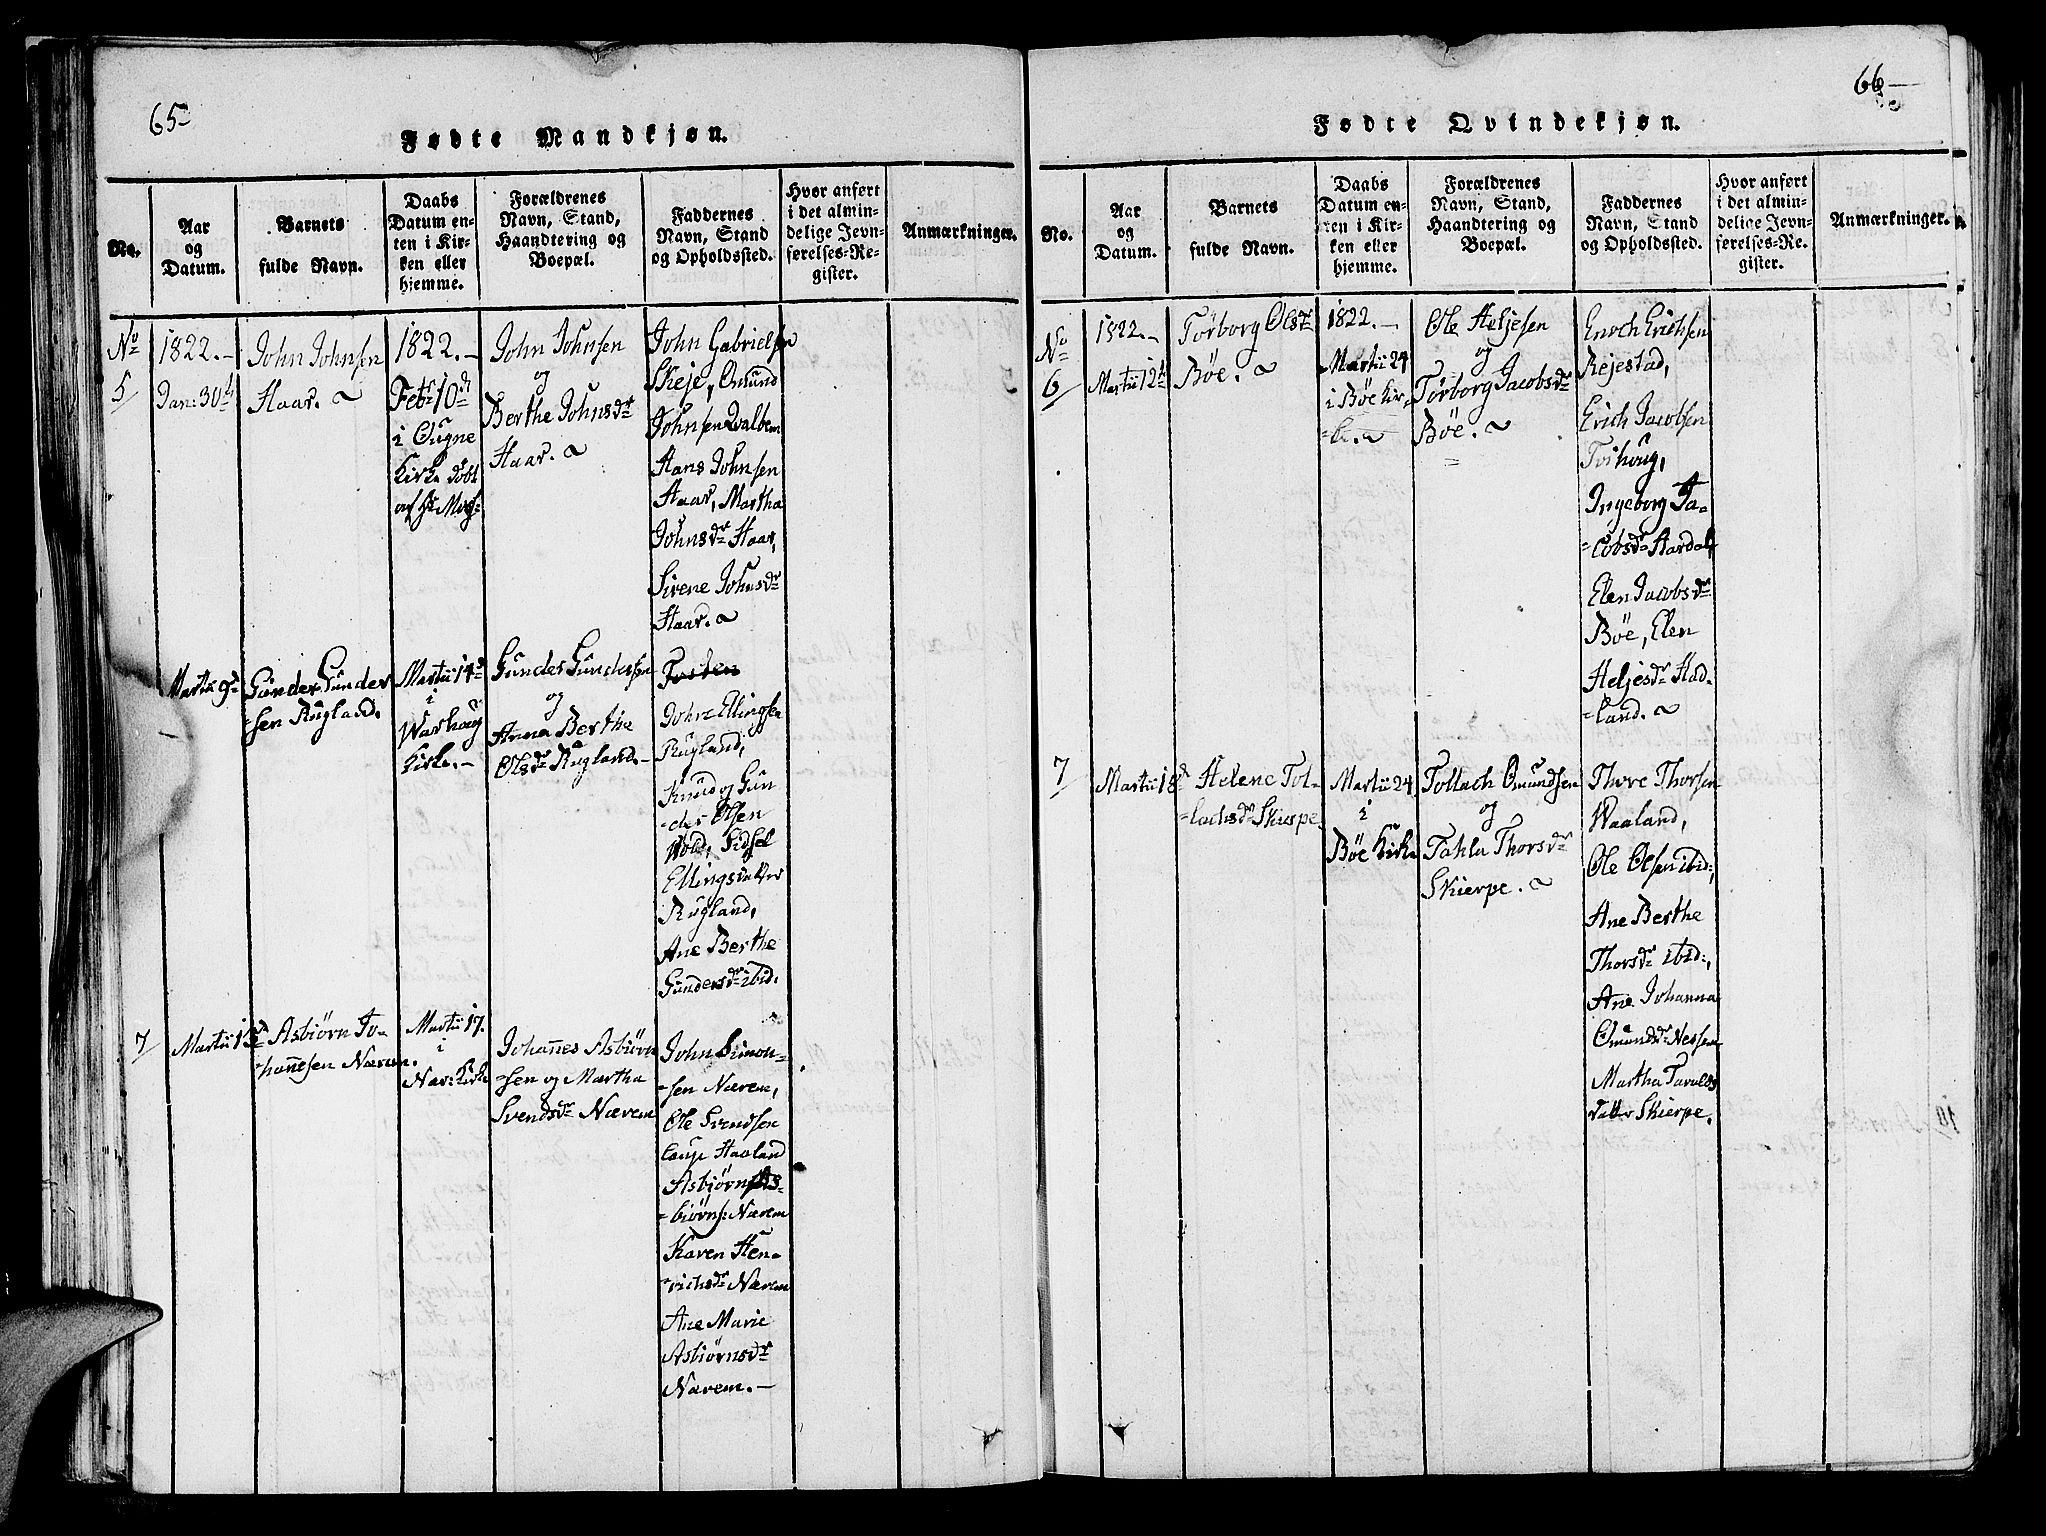 65
Fødte Mandkjøn.
No.
Aar
og
Datum.
Barnets
fulde Navn.
Daabs
Datum en-
ten i Kir-
ken eller
hjemme.
Forældrenes
Navn, Stand,
Haandtering og
Boepæl.
Faddernes
Navn, Stand
og Opholdssted.
Hvor anført
i det almin-
delige Jevn-
førelses-Re-
gister.
Anmærkninger.
No
5
1822.-
Jan: 30te
John Johnsen
Haar.
1822.-
Febr: 10de
i Ougne
Kirke døbt
af Hr
John Johnsen
og
Berthe Johnsdr
Haar.
John Gabrielsen
Skeje, Omund
Johnsen Qvalbein
Hans Johnsen
Haar, Martha
Johnsdr Haar,
Sirene Johnsdr
Haar.
Martii 9de
Gunder Gunder
=sen Rugland.
Martii 14de
i
Warhoug
Kirke.-
Gunder Gundersen
og
Anna Berthe
Olsdr Rugland.-
Torsten
John Ellingsen
Rugland,
Knud og Gun
=der Olsen
Wold, Sidsel
Ellingsdatter
Rugland,
Ane Berthe
Gundersdr ibid.
7
Martii 13de
Asbiørn Jo-
hannesen Nærem.
Martii 17.
i
Nær: Kirke
Johannes Asbiørn
=sen og Martha
Svendsdr Nærem
John Simon=
=sen Nærem,
Ole Svendsen
Haaland
Asbiørn As-
=biørns: Nærem
Karen Hen-
richsdr Nærem
Ane Marie
Asbiørnsdr
Nærem.-
66
Fødte Qvindekjøn.
No.
Aar
og
Datum.
Barnets
fulde Navn.
Daabs
Datum en-
ten i Kir-
ken eller
hjemme.
Forældrenes
Navn, Stand,
Haandtering og
Boepæl.
Faddernes
Navn, Stand
og Opholdssted.
Hvor anført
i det almin-
delige Jevn-
førelses-Re-
gister.
Anmærkninger.
No
6
1822.-
Martii 12te
Tørborg Olsdr
Bøe.
1822.-
Martii 24
i Bøe Kir-
=ke.
Ole Heljesen
og
Tørborg Jacobsdr
Bøe.
Enoch Erichsen
Rejestad,
Erich Jacobsen
Tvihoug,
Ingeborg Ja-
=cobsdr Aardal,
Elen Jacobsdr
Bøe, Elen
Heljesdr Had-
=land.
7
Martii 18de
Helene Tol-
=lachsdr Skierpe.
Martii 24
i
Bøe Kirke
Tollach Omundsen
og
Tahla Thorsdr
Skierpe.
Thore Thorsen
Waaland,
Ole Olsen ibid:,
Ane Berthe
Thorsdr ibid:,
Ane Johanna
Omundsdr Nessem
Martha Taralds
datter Skierpe.